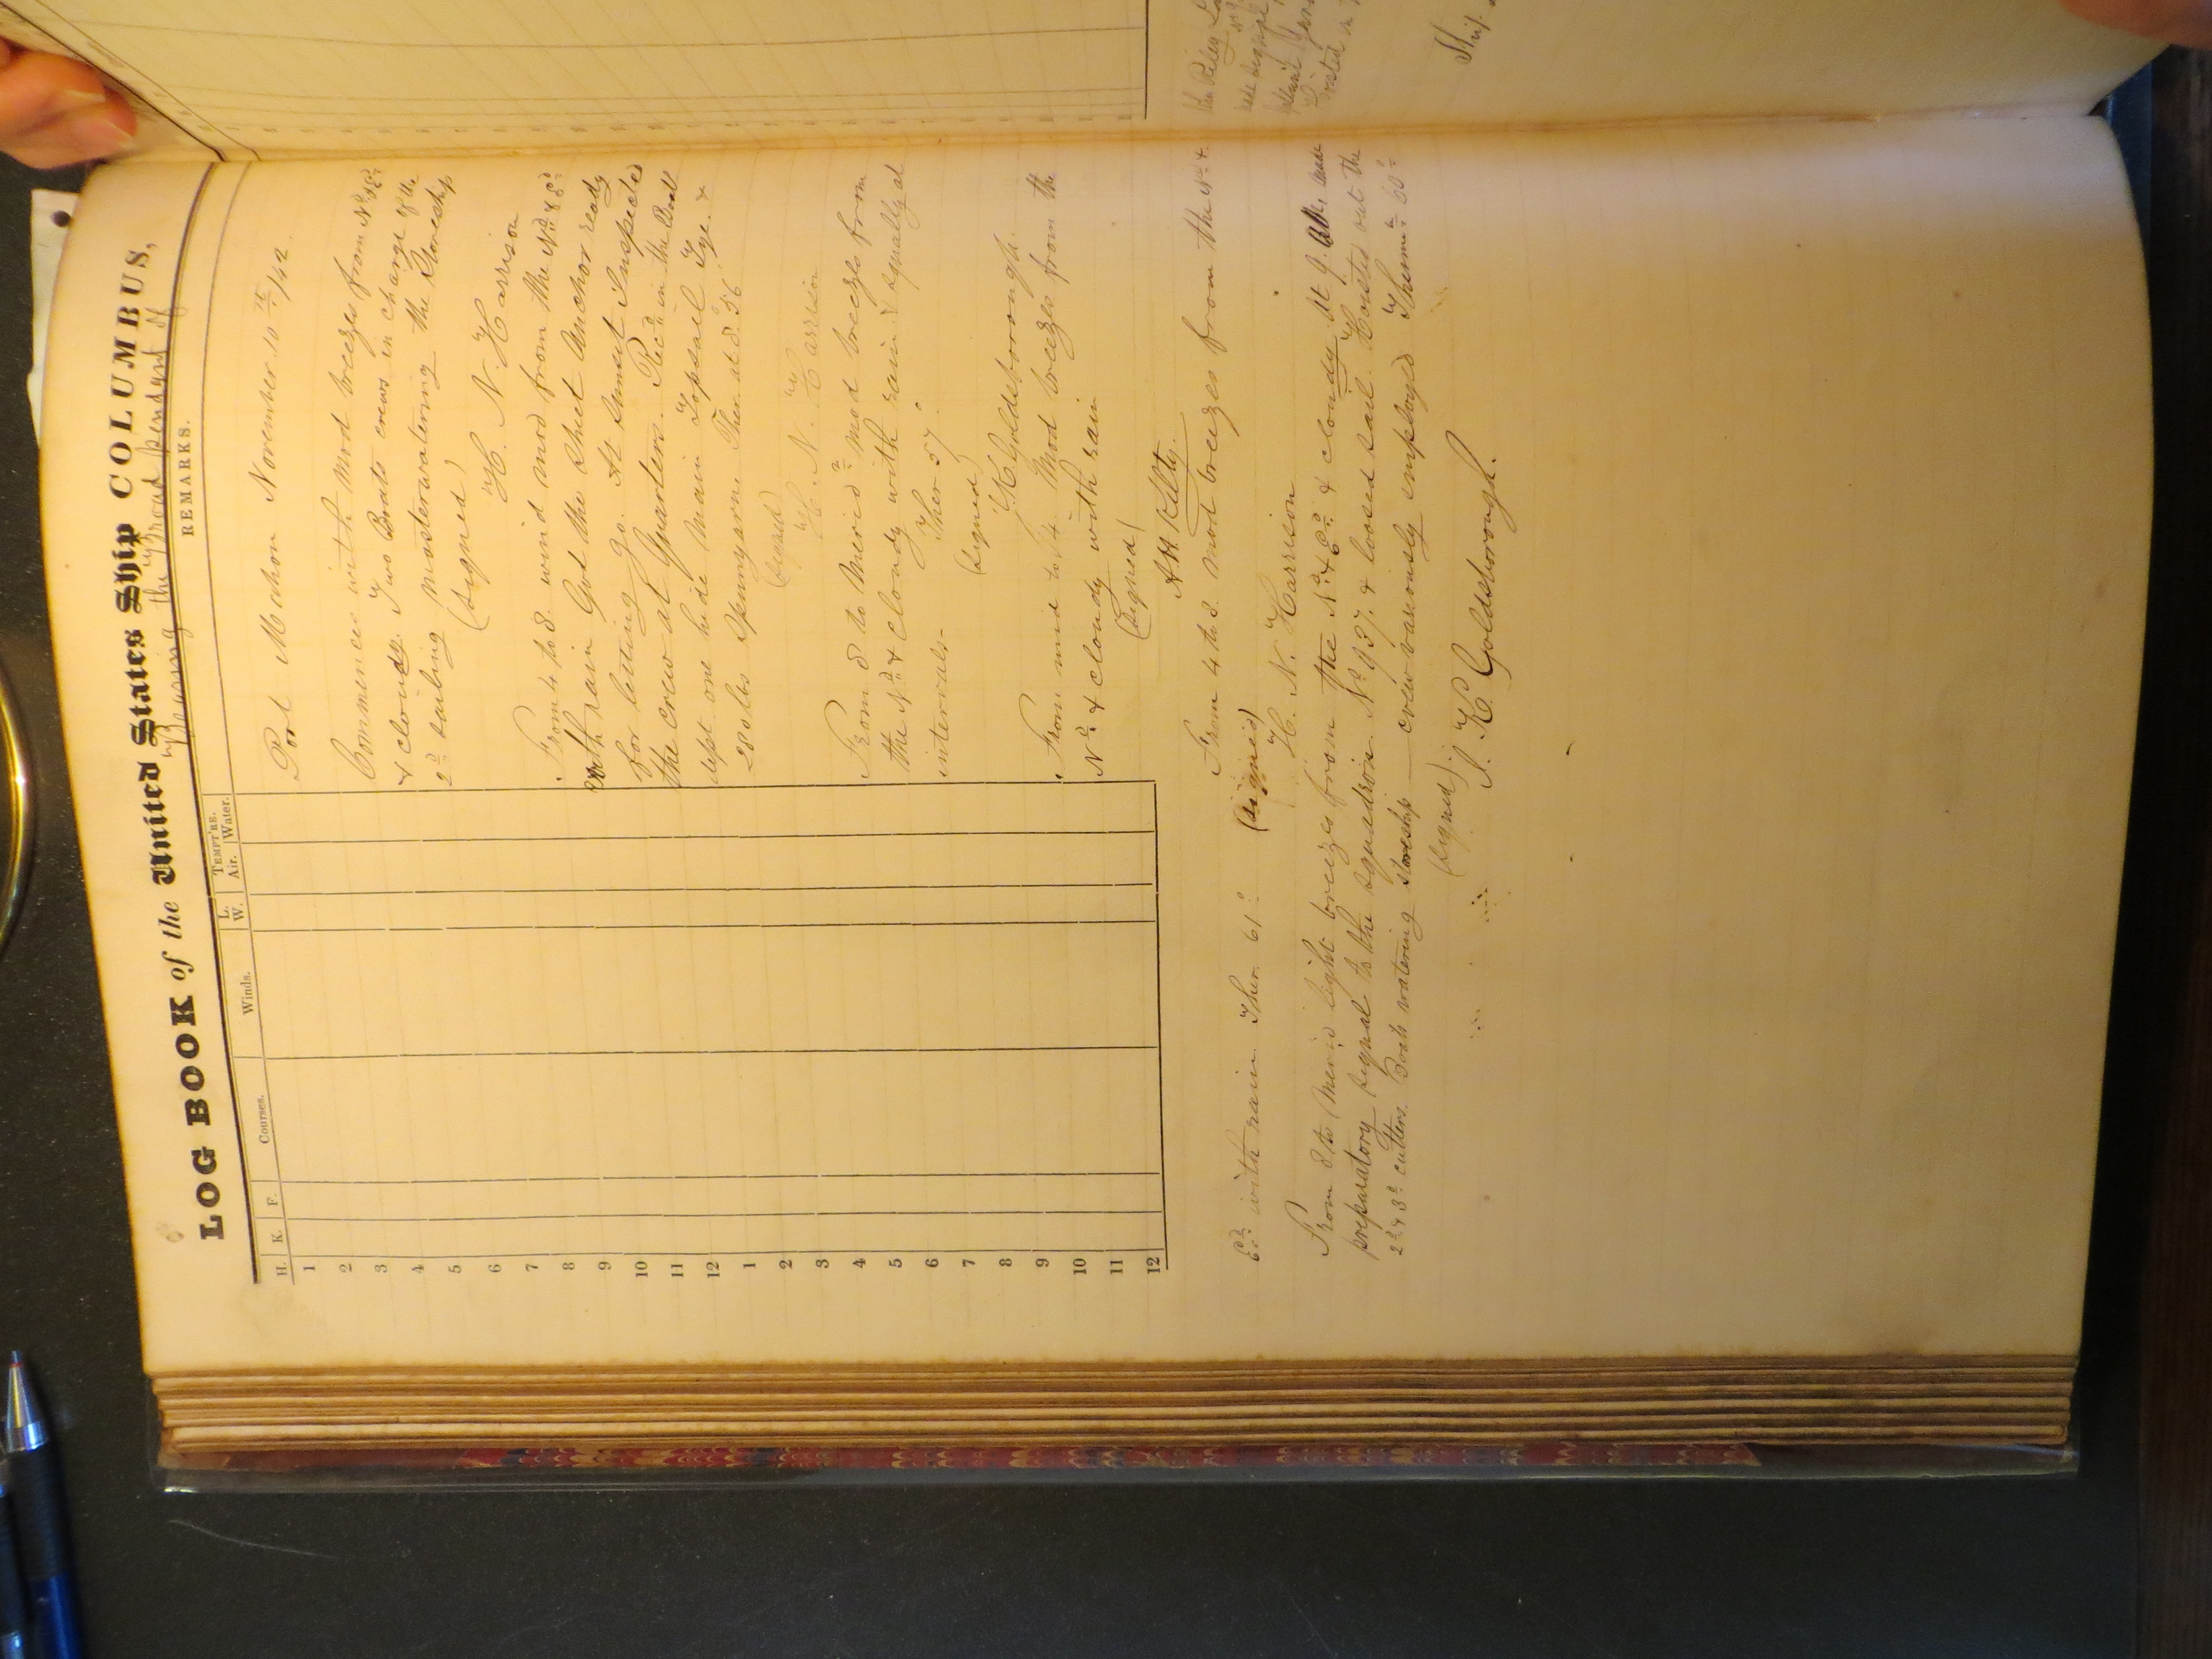 LOG BOOK of the United States Ship COLUMBUS,
Bearing the Broad pendant of
H. K. F. Courses. Winds. L. W. TEMPT'RE. Air. Water. REMARKS.
1
2
3
4
5
6
7
8
9
10
11
12
1
2
3
4
5
6
7
8
9
10
11
12
Port Mahon November 10th /42
Commences with Mod breezes from Nd & Ed
& cloudy. Two Boats crews in charge of the
2d sailing master watering the Storeship
(Signed)
H. N. Harrison
From 4 to 8. wind mod from the Nd & Ed
with rain Got the Sheet Anchor ready
for letting go. At Sunset Inspected
the crew at Quarters. Recd in the
dept one hide Main Topsail Tye. &
280 lbs Spunyarn. Ther at 8. 56°
(Signed)
H. N. Harrison
From 8 to Merid Mod breezes from
the Nd & cloudy with rain & squally at
intervals. Ther 57°
(Signed)
K. Goldsborough.
From mid to 4 Mod breezes from the
Nd & cloudy with rain
(Signed)
A.H. Kilty.
From 4 to 8. Mod breezes from the Nd &
Ed with rain Ther 61°
(Signed)
H. N. Harrison
From 8 to Merid light breezes from the Nd & Ed & cloudy At 9. made
preparatory signal to the squadron No 937. & loosed sail. Hoisted out the
2d & 3d cutters. Boats watering storeship crew variously employed Therm 60°
(Signed)
J. K. Goldsborough.
Ship